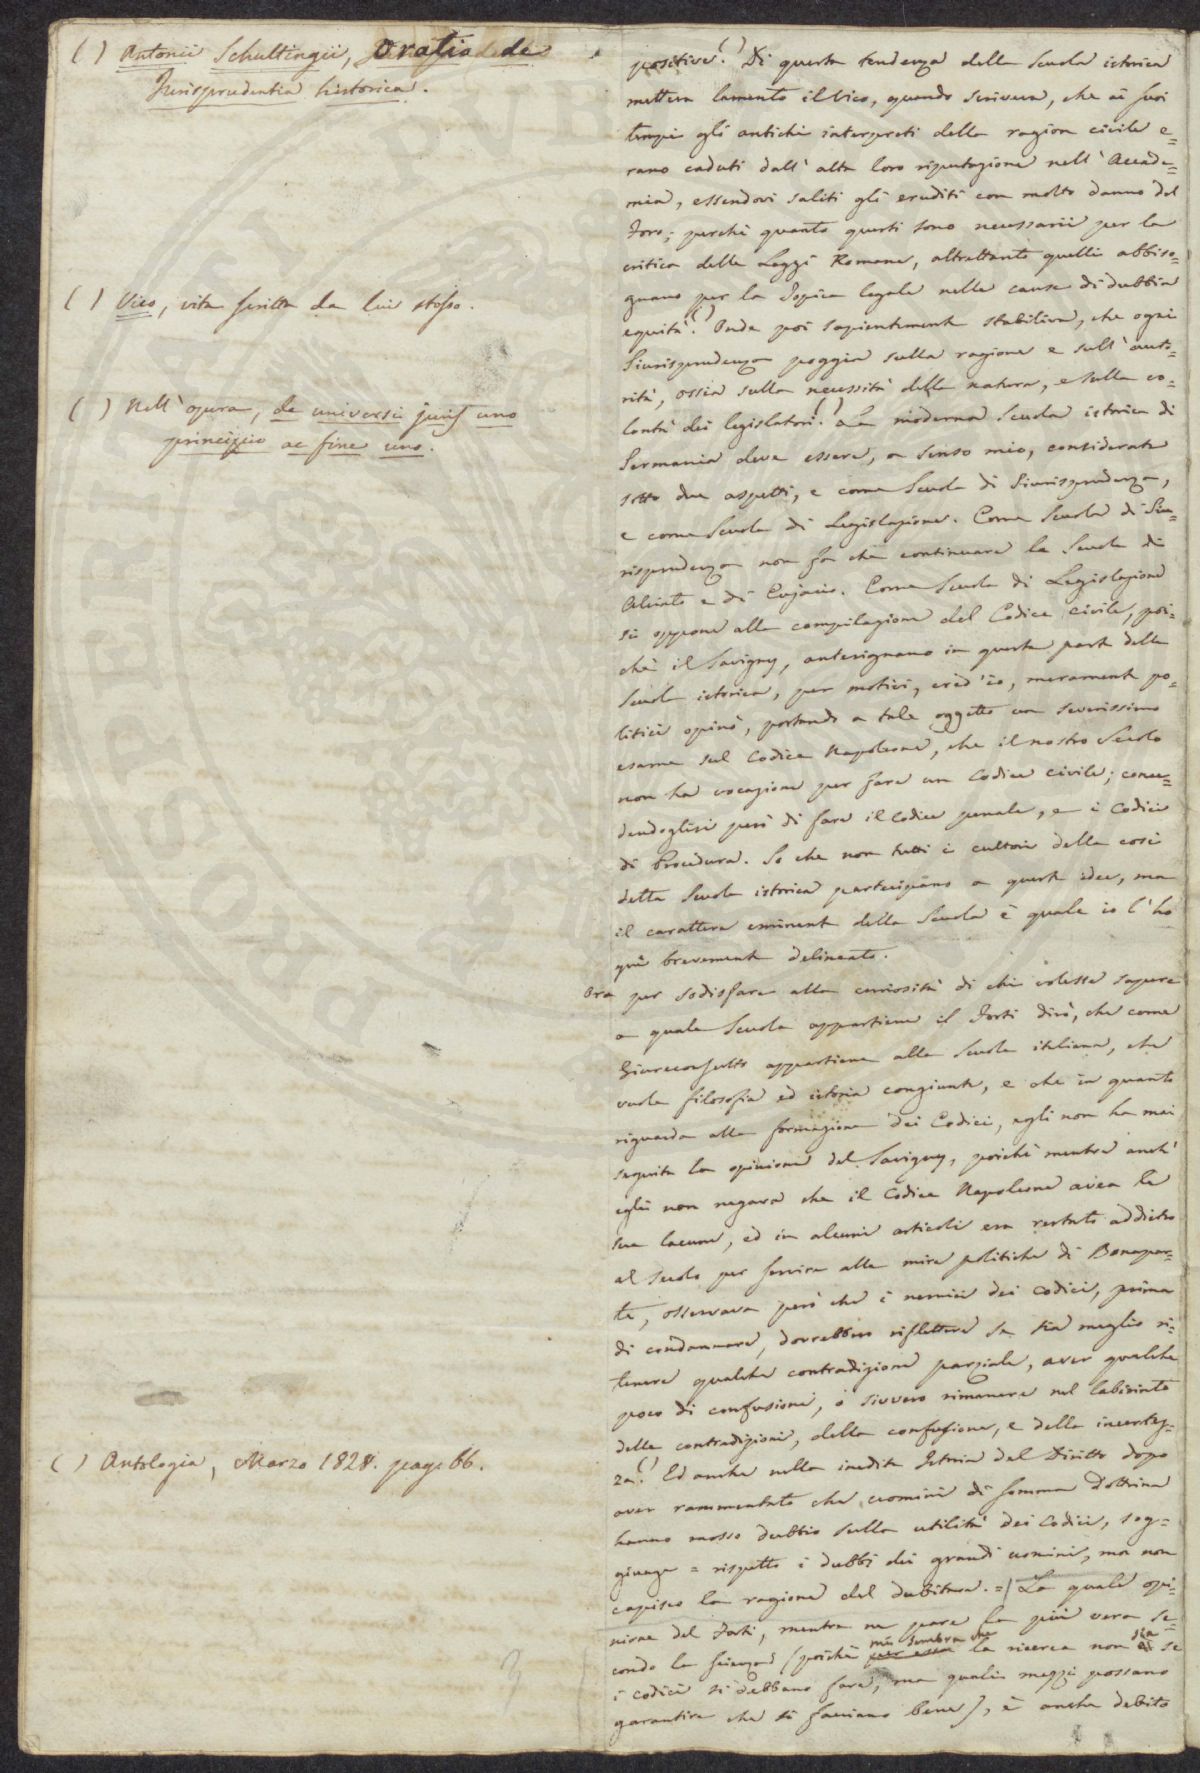 ( ) Antonii Schultingii, Oratio de
Jurisprudentia historica.
( ) Vico, vita scritta da lui stesso.
( ) Nell' opera, de universi juris uno
principio ac fine uno.
( ) Antologia, Marzo 1828. pag. 66.
positive.( ) Di questa tendenza della Scuola istorica
metteva lamento il Vico, quando scriveva, che ai suoi
tempi gli antichi interpreti della ragion civile e=
rano caduti dall' alta loro riputazione nell' Accade=
mia, essendovi saliti gli eruditi con molto danno del
Foro; perchè quanto questi sono necessarii per la
critica delle Leggi Romane, altrettanto quelli abbiso=
gnano per la Topica legale nelle cause di dubbia
equità.( ) Onde poi sapientemente stabiliva, che ogni
Giurisprudenza poggia sulla ragione e sull' auto=
rità, ossia sulla necessità della natura, e sulla vo=
lontà dei legislatori.( ) La moderna Scuola istorica di
Germania deve essere, a senso mio, considerata
sotto due aspetti, e come Scuola di Giurisprudenza,
e come Scuola di Legislazione. Come Scuola di Giu=
risprudenza non fa che continuare la Scuola di
Alciato e di Cujacio. Come Scuola di Legislazione
si oppone alla compilazione del Codice civile, poi=
chè il Savigny, antesignano in questa parte della
Scuola istorica, per motivi, cred' io, meramente po=
litici opinò, portando a tale oggetto un severissimo
esame sul Codice Napoleone, che il nostro Secolo
non ha vocazione per fare un Codice civile; conce=
dendoglisi però di fare il Codice penale, e i Codici
di Procedura. So che non tutti i cultori della così
detta Scuola istorica partecipano a queste idee, ma
il carattere eminente della Scuola è quale io l' ho
quì brevemente delineato.
Ora per sodisfare alla curiosità di chi volesse sapere
a quale Scuola appartiene il Forti dirò, che come
Giureconsulto appartiene alla Scuola italiana, che
vuole filosofia ed istoria congiunte, e che in quanto
riguarda alla formazione dei Codici, egli non ha mai
seguita la opinione del Savigny, poichè mentre anch'
egli non negava che il Codice Napoleone avea le
sue lacune, ed in alcuni articoli era restato addietro
al Secolo per servire alle mire politiche di Bonapar=
te, osservava però che i nemici dei Codici, prima
di condannare, dovrebbero riflettere se sia meglio ri=
tenere qualche contradizione parziale, aver qualche
poco di confusione, o sivvero rimanere nel labirinto
delle contradizioni, della confusione, e della incertez=
za.( ) Ed anche nella inedita Istoria del Diritto dopo
aver rammentato che uomini di somma Dottrina
hanno mosso dubbio sulla utilità dei Codici, sog=
giunge = rispetto i dubbi dei grandi uomini, ma non
capisco la ragione del dubitare. = La quale opi=
nione del Forti, mentre ne pare la più vera se=
condo la scienza (poichè mi sembra che la ricerca non sia se
i codici si debbano fare, ma quali mezzi possano
garantire che si facciano bene), è anche debito